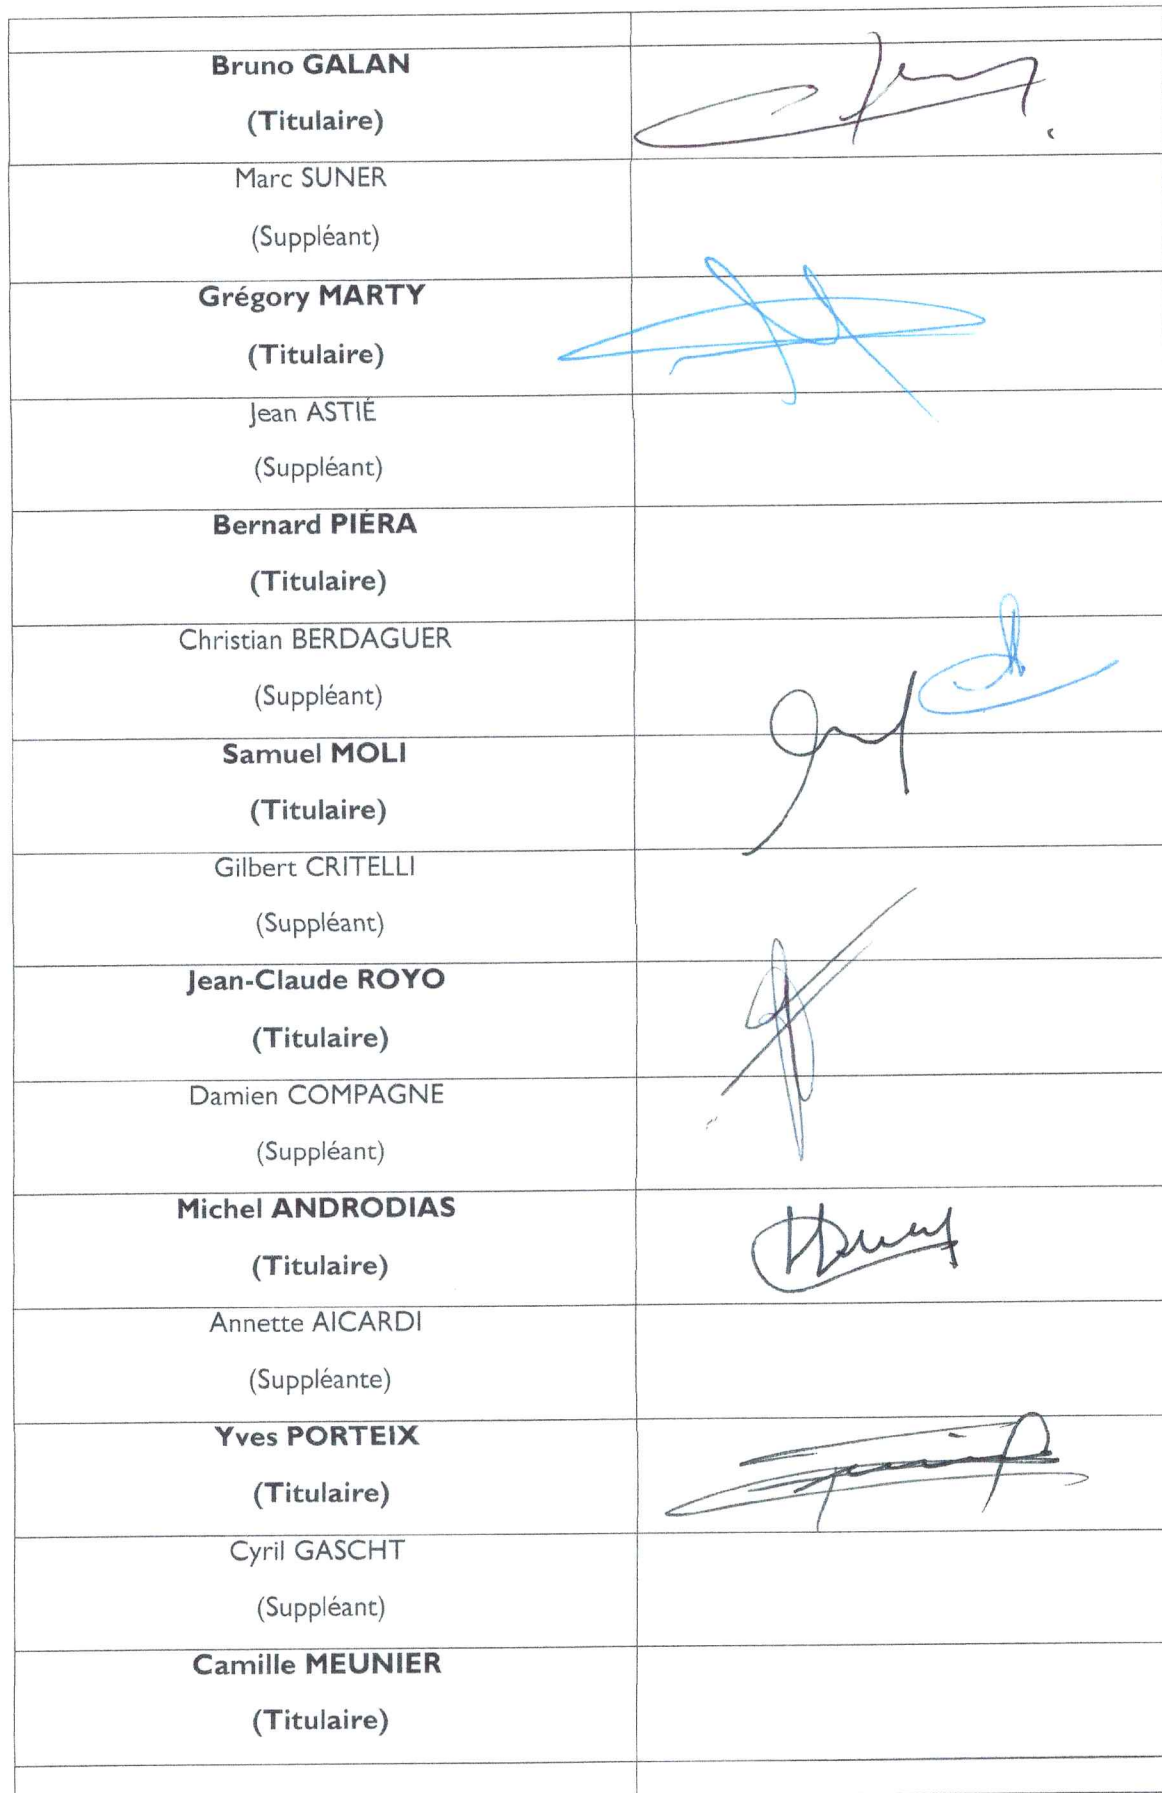 Bruno GALAN
(Titulaire)
Marc SUNER
(Suppléant)
Grégory MARTY
(Titulaire)
Jean ASTIÉ
(Suppléant)
Bernard PIÉRA
(Titulaire)
Christian BERDAGUER
(Suppléant)
Samuel MOLI
(Titulaire)
Gilbert CRITELLI
(Suppléant)
Jean-Claude ROYO
(Titulaire)
Damien COMPAGNE
(Suppléant)
Michel ANDRODIAS
(Titulaire)
Annette AICARDI
(Suppléante)
Yves PORTEIX
(Titulaire)
Cyril GASCHT
(Suppléant)
Camille MEUNIER
(Titulaire)